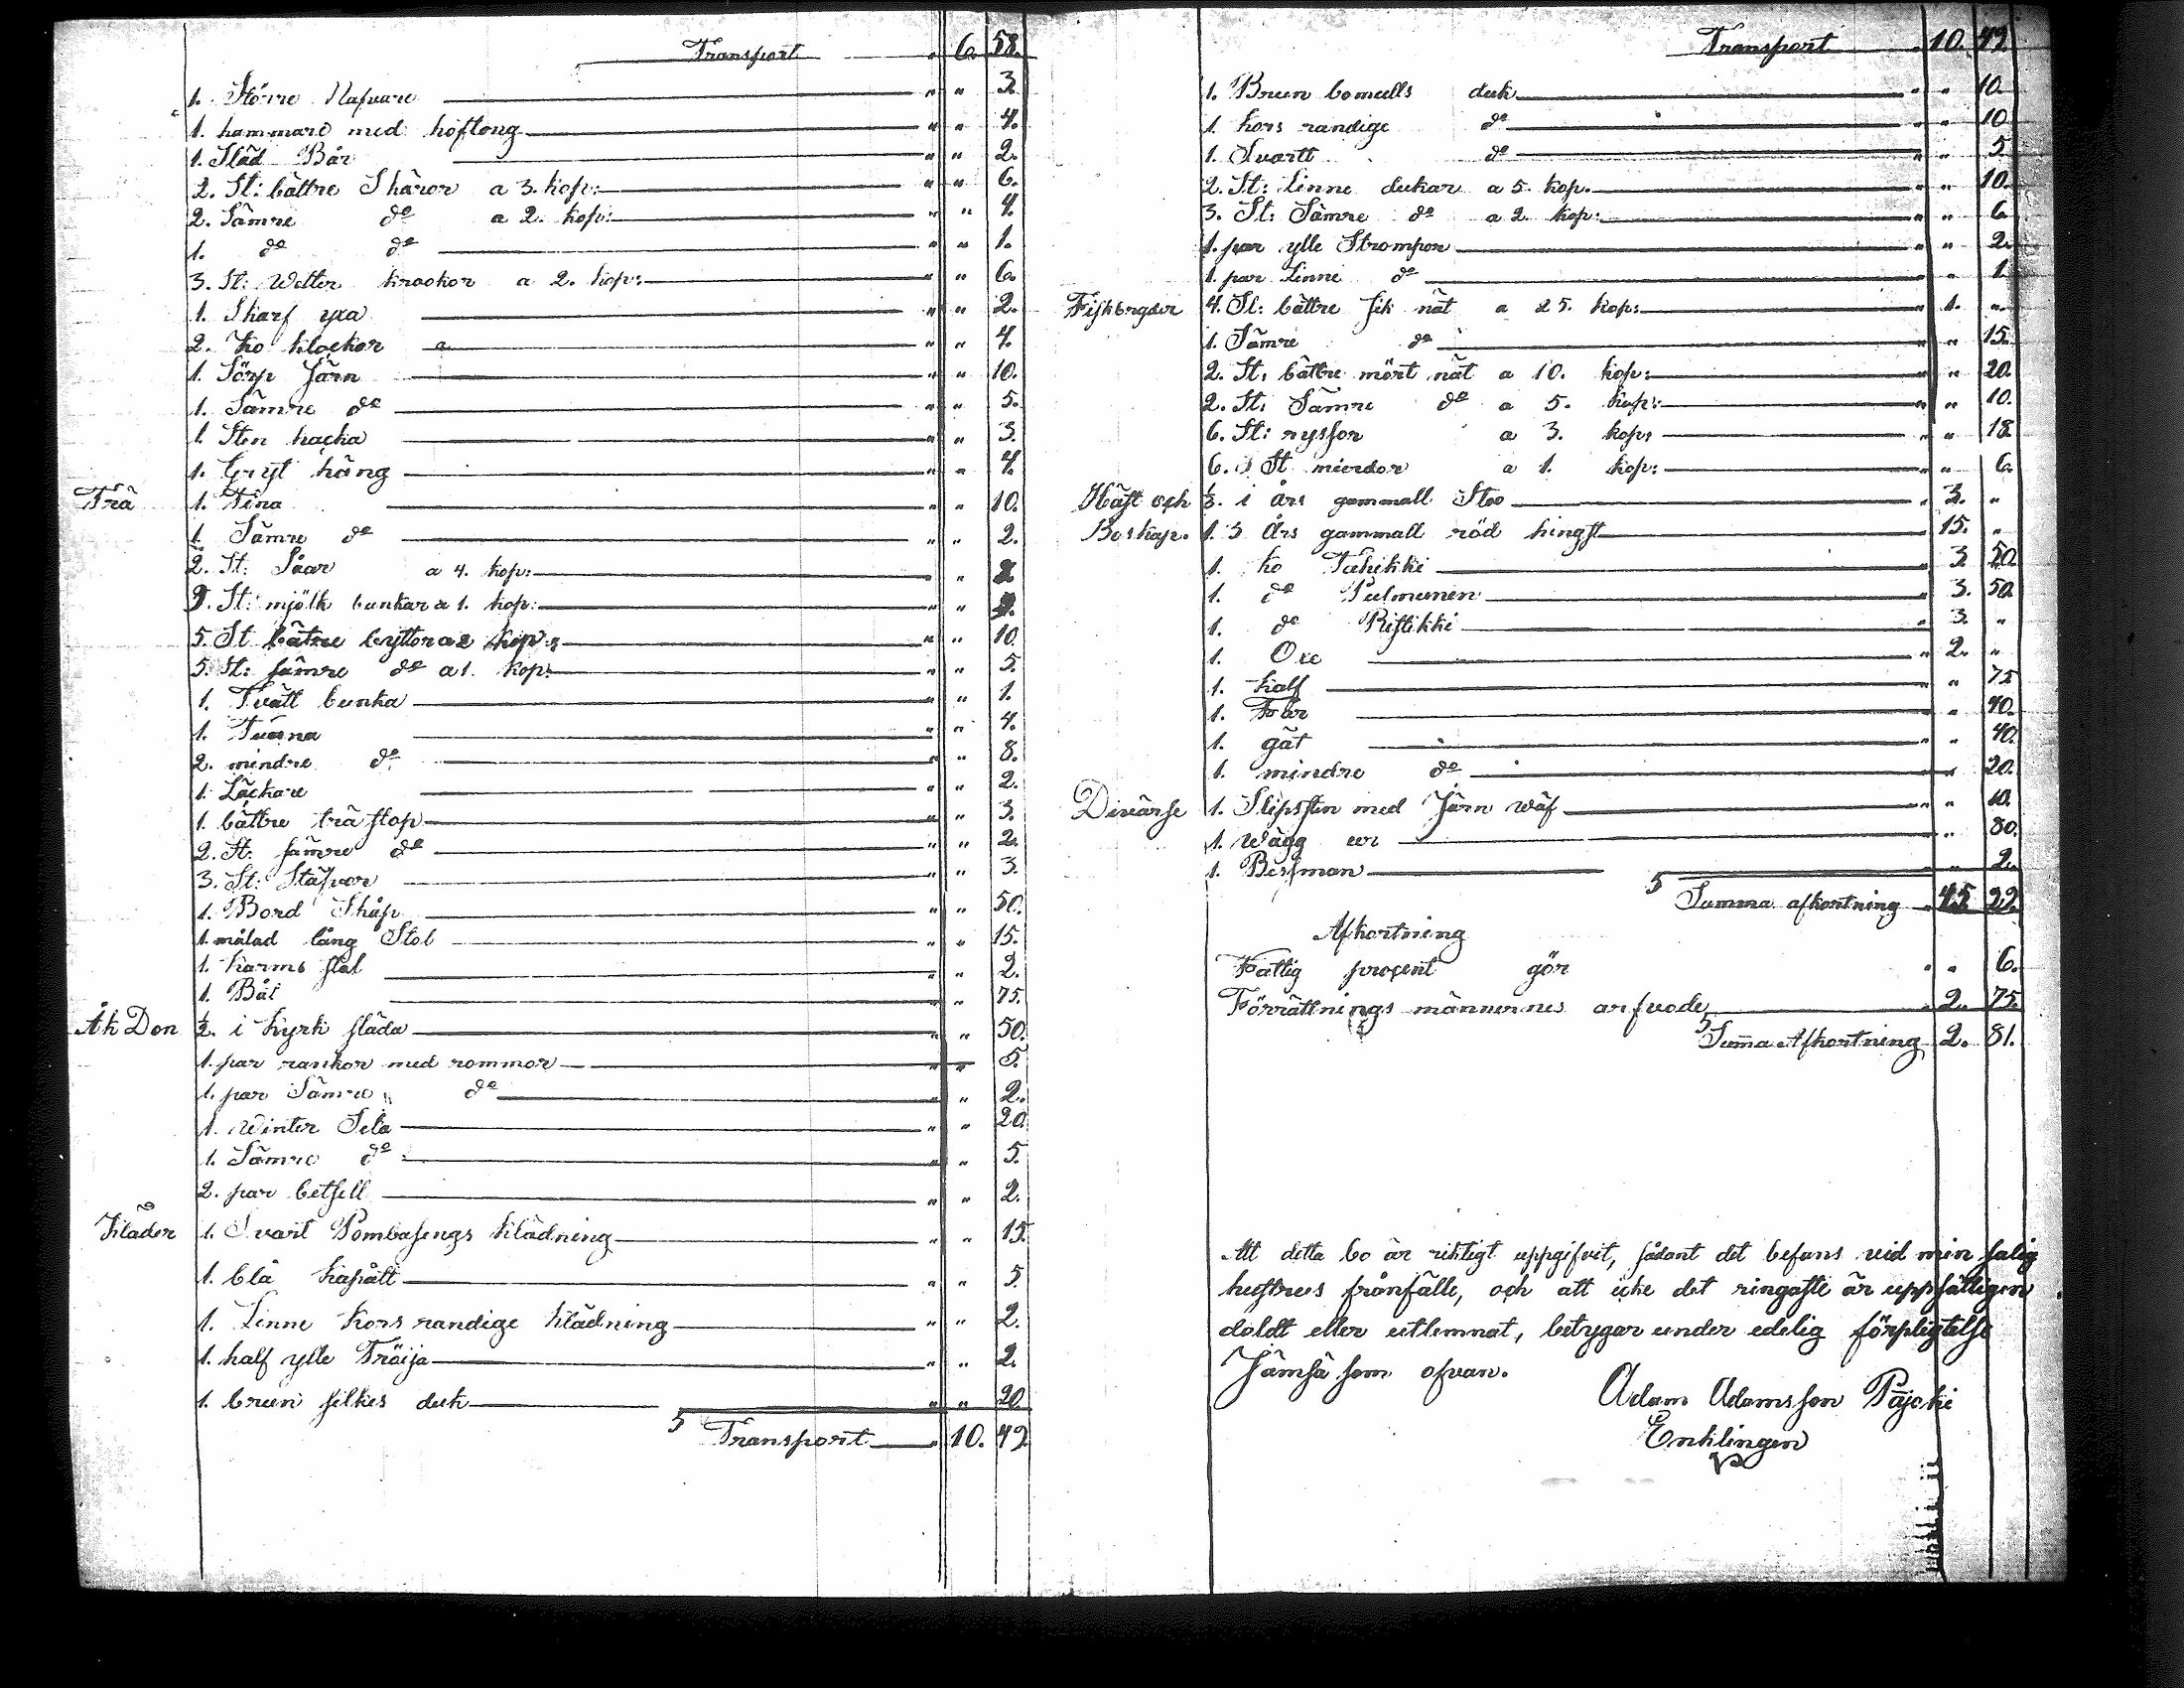 Transport " 6. 58.
1. Större Nafvare " " 3.
1. hammare med hoftong " " 4.
1. Släd Bår " " 2.
2. St: bättre Skäror a 3. kop: " " 6.
2. Sämre do a 2. kop: " " 4.
1. do do " " 1.
3. St: Wetter krookor a 2. kop: " " 6.
1. Skarf yxa " " 2.
2. Ko klockor a " " 4.
1. Sörp Järn " " 10.
1. Sämre do " " 5.
1. Sten hacka " " 3.
1. Gryt häng " " 4.
Trä 1. Tina " " 10.
1. Sämre do " " 2.
2. St: Såar a 4. kop: " "
St: mjölk bunkar a 1. kop: " "
5. St bätre byttor a 2 kop: " " 10.
5. St: sämre do a 1. kop: " " 5.
1. Tvätt bunka " " 1.
1. Tuena " " 4.
2. mindre do " " 8.
1. Läckare " " 2.
1. bättre trä stop " " 3.
2. St: sämre do " " 2.
3. St: Stäfvor " " 3.
1. Bord Skåp " " 50.
1. målad lång Stol " " 15.
1. Karms stol " " 2.
1. Båt " " 75.
Åk Don ½. i Kyrk släda " " 50.
1. par rankor med rommor " " 5.
1. par Sämre " do " " 2.
1. Winter Sela " " 20.
1. Sämre do " " 5.
2. par betsell " " 2.
Kläder 1. Svart Bombasengs Klädning " " 15.
1. blå kapått " " 5.
1. Linne Kors randige Klädning " " 2.
1. half ylle Tröija " " 2.
1. brun silkes duk " " 20.
S Transport " 10. 49.
Transport " 10. 49.
1. Brun bomulls duk " " 10.
1. kors randige do " " 10
1. Svartt do " " 5
2. St: Linne dukar a 5. kop. " " 10.
3. St: Sämre do a 2. kop: " " 6.
1. par ylle Strompor " " 2.
1. par Linne do " " 1.
Fiskbrgder 4. St: bättre sik nät a 25. kop: " 1. "
1. Sämre do " " 15.
2. St: bättre mört nät a 10. kop: " " 20.
2. St: Sämre do a 5. kop: " " 10.
6. St: ryssjor a 3. kop: " " 18.
6. St mierdor a 1. kop: " " 6.
Häst och ½. i års gammall Stoo " 3. "
Boskap. 1. 3 Års gammall röd hingst " 15. "
1. ko Tahikki " 3. 50.
1. do Pulmunen " 3. 50.
1. do Ristikki " 3. "
1. Oxe " 2. "
1. kalf " " 75
1. Får " " 40.
1. gät " " 40.
1. mindre do " " 20.
Diveärse 1. Slipsten med Järn wäf " " 10.
1. Wägg ur " " 80.
1. Bessman " " 2.
S Summa afkortning " 45. 22.
Afkortning
Fattig procent gör " " 6.
Förrättnings männernes arfvode " 2. 75.
S Summa Afkortning 2. 81.
Att detta bo är riktigt uppgifvit, sådant det befans vid min salig
hustrus frånfälle, och att icke det ringaste är uppsåtligen
doldt eller utlemnat, betygar under edelig förpligtelse
Jämsä som ofvan.
Adam Adamsson Päjcki
Enklingen